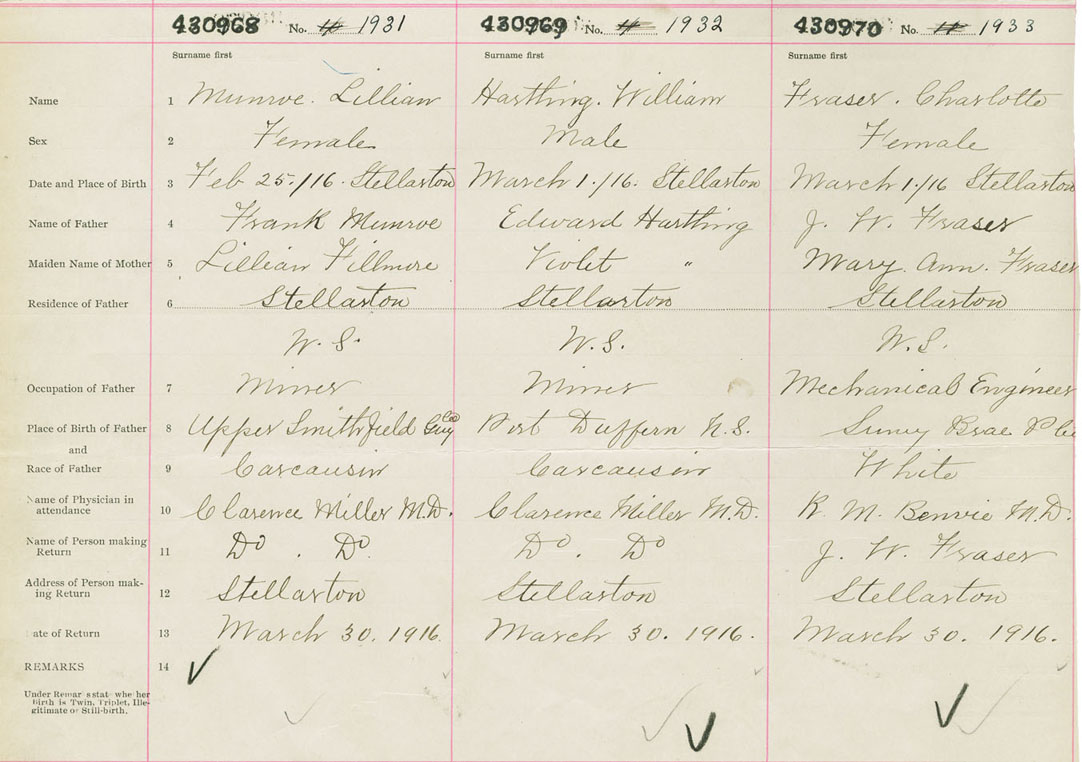 430968 No. 11 1931 430969 No. 11 1932 430970 No. 11 1933
Surname first Surname first Surname first
Name 1 Munroe. Lillian Harthing. William Fraser. Charlotte
Sex 2 Female Male Female
Date and Place of Birth 3 Feb 25./16. Stellarton March 1./16. Stellarton March 1./16 Stellarton
Name of Father 4 Frank Munroe Edward Harthing J. W. Fraser
Maiden Name of Mother 5 Lillian Fillmore Violet " Mary. Ann. Fraser
Residence of Father 6 Stellarton Stellarton Stellarton
W. S. W. S. W. S.
Occupation of Father 7 Miner Miner Mechanical Engineer
Place of Birth of Father 8 Upper Smithfield Guy Co Port Duffern N. S. Sunny Brae P Co
and
Race of Father 9 Carcausin Carcausin White
Name of Physician in
attendance 10 Clarence Miller M.D. Clarence Miller M.D. R. M. Benvie M.D.
Name of Person making
Return 11 Do . Do Do . Do J. W. Fraser
Address of Person mak-
ing Return 12 Stellarton Stellarton Stellarton
ate of Return 13 March 30. 1916. March 30. 1916. March 30. 1916.
REMARKS 14
Under Remar s stat whe her
birth is Twin, Triplet, Ille-
gitimate or Still-birth.